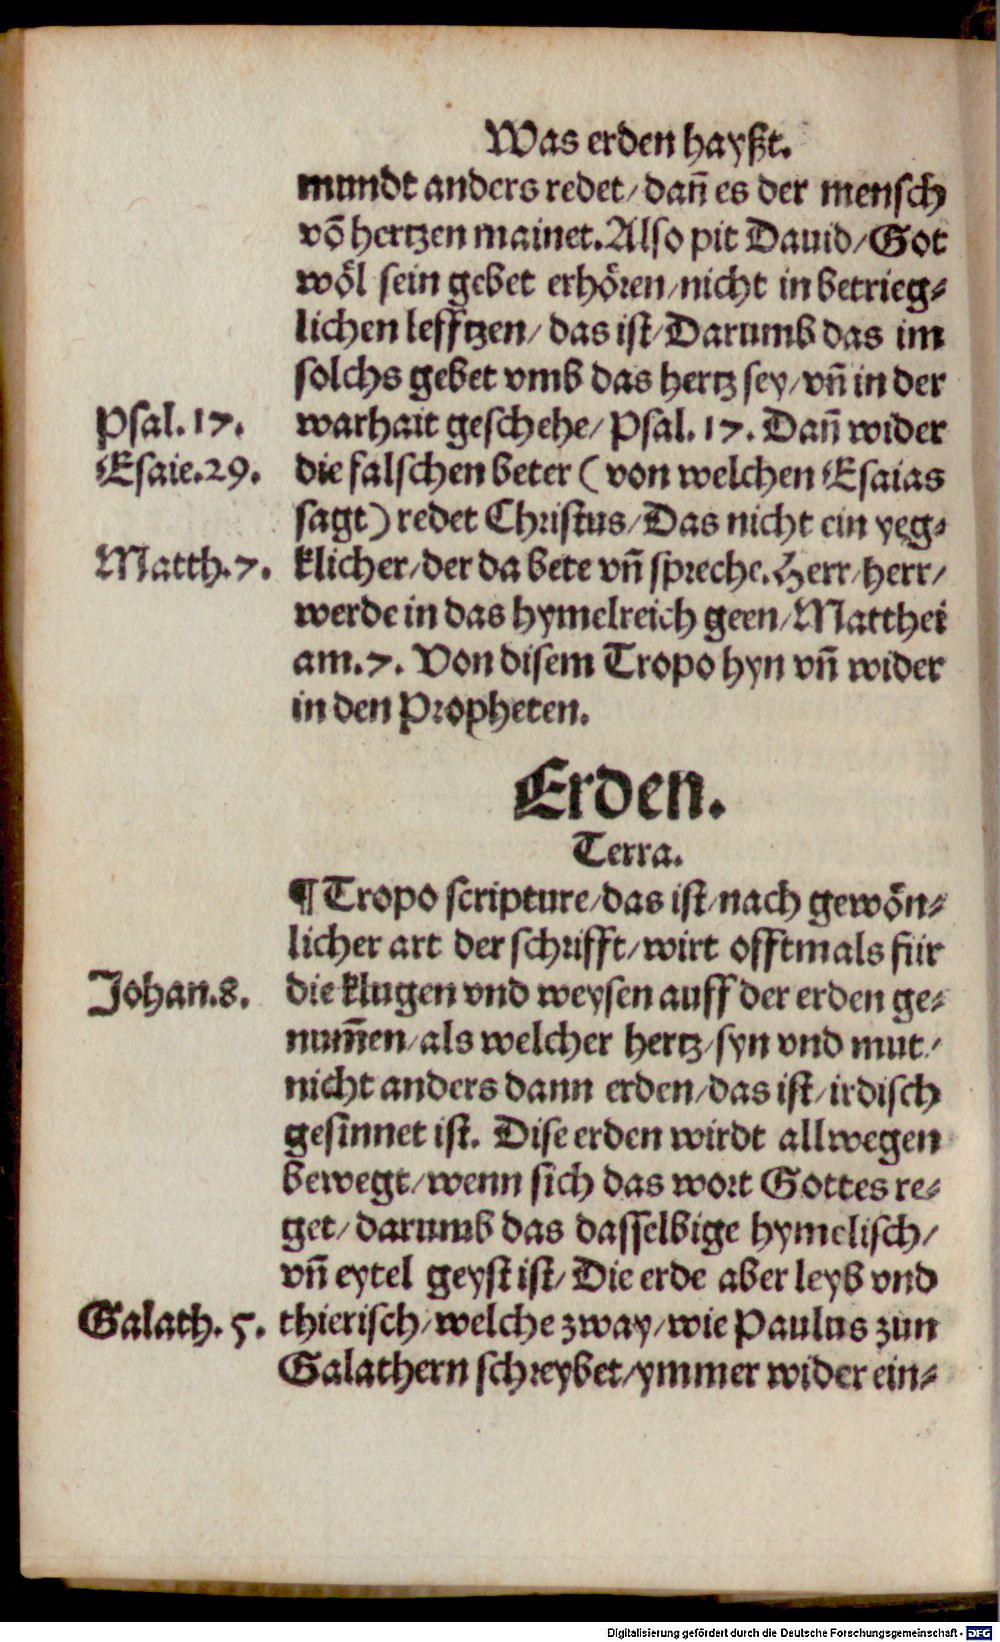 Was erden hayßt.
mundt anders redet/ dañ es der mensch
võ hertzen mainet. Also pit Dauid/ Got
wöl sein gebet erhören/ nicht in betrieg⸗
lichen lefftzen/ das ist/ Darumb das im
solchs gebet vmb das hertz sey/ vñ in der
Psal. 17. warhait geschehe/ Psal. 17. Dañ wider
Esaie. 29. die falschen beter ( von welchen Esaias
sagt) redet Christus/ Das nicht ein yeg⸗
Matth. 7. klicher/ der da bete vñ spreche. Herr/ herr/
werde in das hymelreich geen/ Matthei
am. 7. Von disem Tropo hyn vñ wider
in den Propheten.
Erden.
Terra.
¶ Tropo scripture/ das ist/ nach gewön⸗
licher art der schrifft/ wirt offtmals für
Johan. 8. die klugen vnd weysen auff der erden ge⸗
num̃en/ als welcher hertz/ syn vnd mut/
nicht anders dann erden/ das ist/ irdisch
gesinnet ist. Dise erden wirdt allwegen
bewegt/ wenn sich das wort Gottes re⸗
get/ darumb das dasselbige hymelisch/
vñ eytel geyst ist/ Die erde aber leyb vnd
Galath. 5. thierisch/ welche zway/ wie Paulus zun
Galathern schreybet/ ymmer wider ein⸗
Digitalisierung gefördert durch die Deutsche Forschungsgemeinschaft - DFG